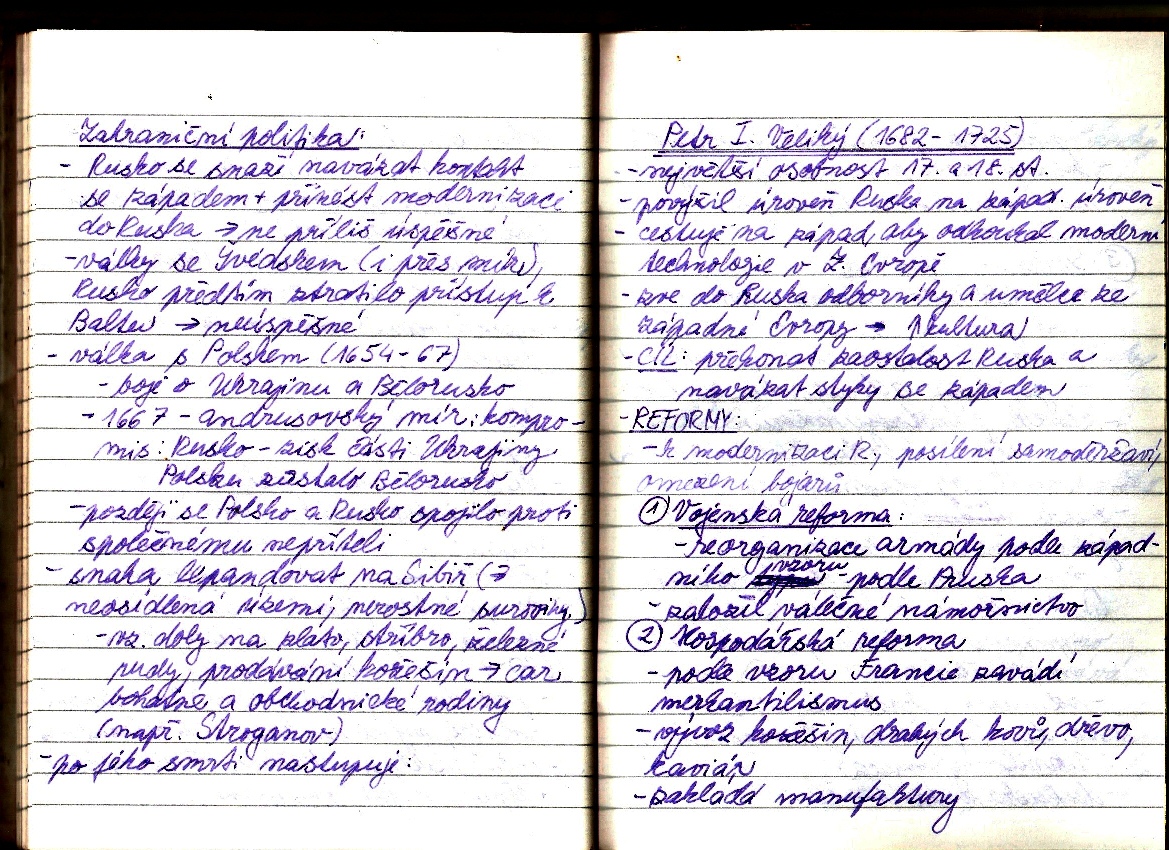 Zahraniční politika:
- Rusko se snaží navázat kontakt
se západem + přinést modernizaci
do Ruska → ne příliš úspěšné
- války se Švédskem (i přes mír),
Rusko předtím ztratilo přístup k
Baltu → neúspěšné
- válka s Polskem (1654-67)
- boje o Ukrajinu a Bělorusko
- 1667 - andrusovský mír: kompro-
mis: Rusko - zisk části Ukrajiny
Polsku zůstalo Bělorusko
- později se Polsko a Rusko spojilo proti
společnému nepříteli
- snaha expandovat na Sibiř (→
neosídlená území, nerostné suroviny)
- vz. doly na zlato, stříbro, železné
rudy, prodávání kožešin → car
bohatne a obchodnické rodiny
(např. Stroganov)
- po jého smrti nastupuje:
Petr I. Veliký (1682-1725)
- největší osobnost 17. a 18. st.
- povýšil úroveň Ruska na západ. úroveň
- cestuje na západ, aby odkoukal moderní
technologie v Z. Evropě
- zve do Ruska odborníky a umělce ze
západní Evropy → ↑kultura
- CÍL: překonat zaostalost Ruska a
navázat styky se západem
- REFORMY:
- k modernizaci R., posílení samoděržaví,
omezení bojarů
① Vojenská reforma:
- reorganizace armády podle západ-
ního vzoru - podle Pruska
- založil válečné námořnictvo
② Hospodářská reforma
- podle vzoru Francie zavádí
merkantilismus
- vývoz kožešin, drahých kovů, dřevo,
kaviár
- zakládá manufaktury